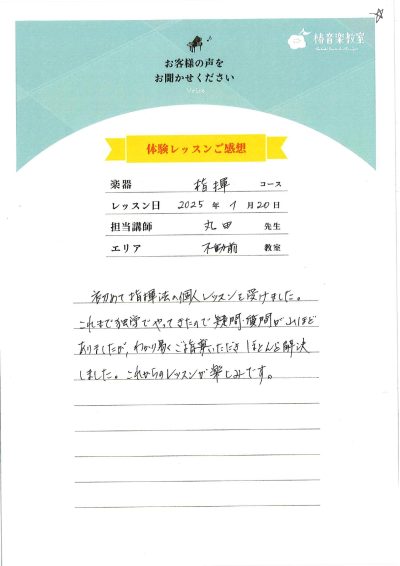 椿音楽教室
お客様の声を
お聞かせください
Voice
体験レッスンご感想
楽器 指揮 コース
レッスン日 2025年 1月20日
担当講師 丸田 先生
エリア 不動前 教室
初めて指揮法の個人レッスンを受けました。
これまで独学でやってきたので疑問・質問が山ほど
ありましたが、わかり易くご指導いただきほとんど解決
しました。これからのレッスンが楽しみです。